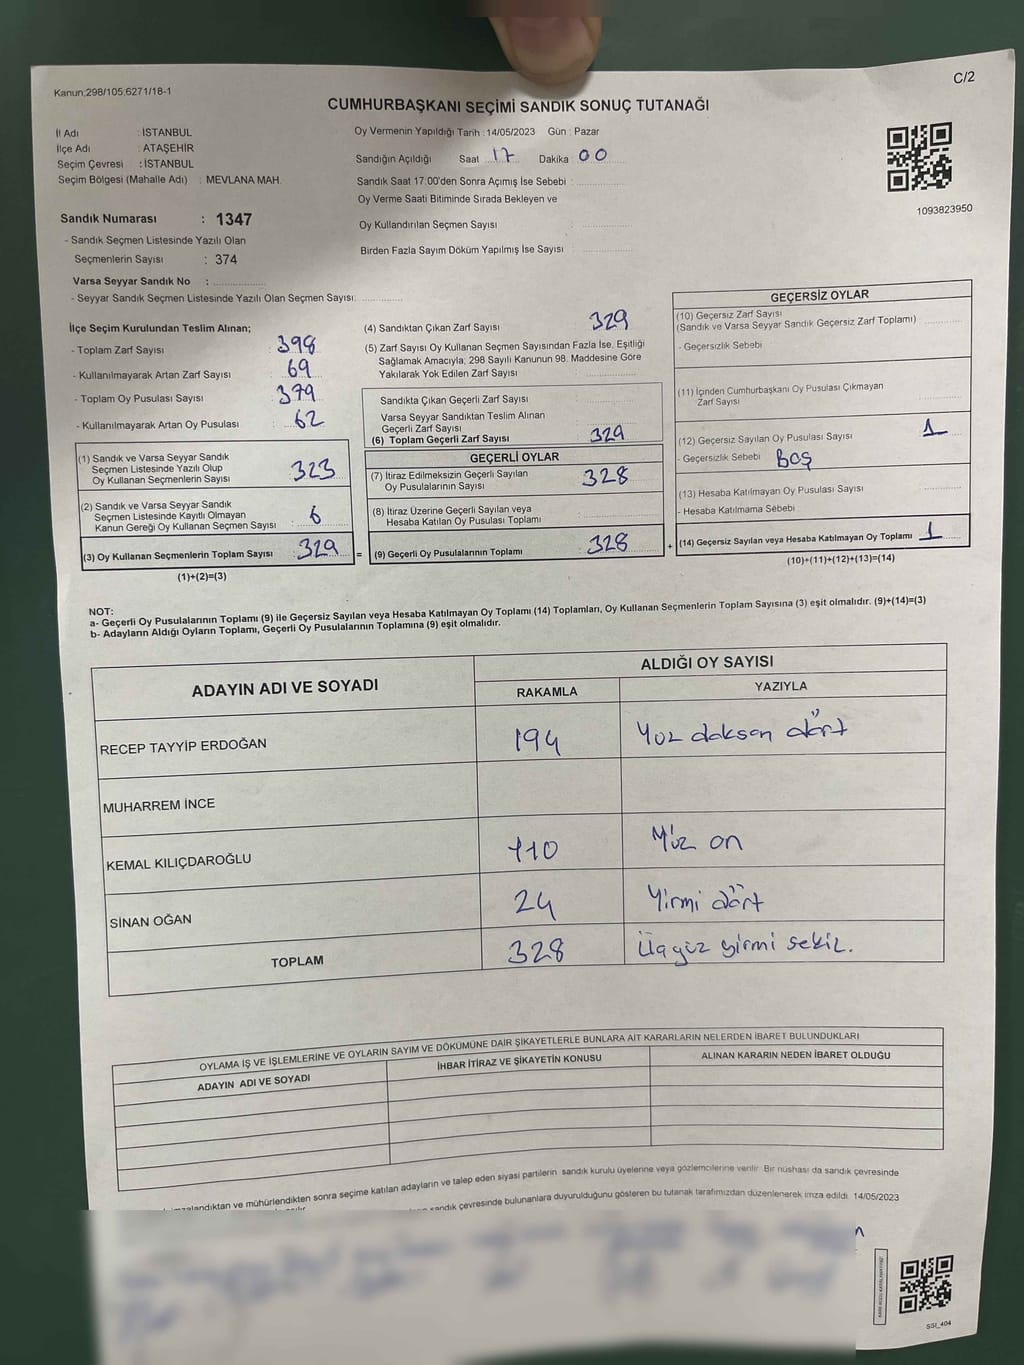 Kanun;298/105,6271/18-1
C/2
CUMHURBAŞKANI SEÇİMİ SANDIK SONUÇ TUTANAĞI
İl Adı : İSTANBUL
İlçe Adı : ATAŞEHİR
Seçim Çevresi : İSTANBUL
Seçim Bölgesi (Mahalle Adı) : MEVLANA MAH.
Sandık Numarası : 1347
- Sandık Seçmen Listesinde Yazılı Olan
Seçmenlerin Sayısı : 374
Varsa Seyyar Sandık No :
- Seyyar Sandık Seçmen Listesinde Yazılı Olan Seçmen Sayısı:
Oy Vermenin Yapıldığı Tarih : 14/05/2023 Gün : Pazar
Sandığın Açıldığı Saat 17 Dakika 00
Sandık Saat 17:00'den Sonra Açımış İse Sebebi :
Oy Verme Saati Bitiminde Sırada Bekleyen ve
Oy Kullandırılan Seçmen Sayısı :
Birden Fazla Sayım Döküm Yapılmış İse Sayısı :
1093823950
İlçe Seçim Kurulundan Teslim Alınan;
- Toplam Zarf Sayısı : 398
- Kullanılmayarak Artan Zarf Sayısı : 69
- Toplam Oy Pusulası Sayısı : 379
- Kullanılmayarak Artan Oy Pusulası : 62
(1) Sandık ve Varsa Seyyar Sandık
Seçmen Listesinde Yazılı Olup
Oy Kullanan Seçmenlerin Sayısı : 323
(2) Sandık ve Varsa Seyyar Sandık
Seçmen Listesinde Kayıtlı Olmayan
Kanun Gereği Oy Kullanan Seçmen Sayısı : 6
(3) Oy Kullanan Seçmenlerin Toplam Sayısı : 329 =
(1)+(2)=(3)
(4) Sandıktan Çıkan Zarf Sayısı 329
(5) Zarf Sayısı Oy Kullanan Seçmen Sayısından Fazla İse, Eşitliği
Sağlamak Amacıyla; 298 Sayılı Kanunun 98. Maddesine Göre
Yakılarak Yok Edilen Zarf Sayısı :
Sandıkta Çıkan Geçerli Zarf Sayısı :
Varsa Seyyar Sandıktan Teslim Alınan
Geçerli Zarf Sayısı :
(6) Toplam Geçerli Zarf Sayısı : 329
GEÇERLİ OYLAR
(7) İtiraz Edilmeksizin Geçerli Sayılan
Oy Pusulalarının Sayısı : 328
(8) İtiraz Üzerine Geçerli Sayılan veya
Hesaba Katılan Oy Pusulası Toplamı
(9) Geçerli Oy Pusulalarının Toplamı : 328 +
GEÇERSİZ OYLAR
(10) Geçersiz Zarf Sayısı :
(Sandık ve Varsa Seyyar Sandık Geçersiz Zarf Toplamı)
- Geçersizlik Sebebi
(11) İçinden Cumhurbaşkanı Oy Pusulası Çıkmayan
Zarf Sayısı
(12) Geçersiz Sayılan Oy Pusulası Sayısı 1
- Geçersizlik Sebebi BOŞ
(13) Hesaba Katılmayan Oy Pusulası Sayısı
- Hesaba Katılmama Sebebi
(14) Geçersiz Sayılan veya Hesaba Katılmayan Oy Toplamı 1
(10)+(11)+(12)+(13)=(14)
NOT:
a- Geçerli Oy Pusulalarının Toplamı (9) ile Geçersiz Sayılan veya Hesaba Katılmayan Oy Toplamı (14) Toplamları, Oy Kullanan Seçmenlerin Toplam Sayısına (3) eşit olmalıdır. (9)+(14)=(3)
b- Adayların Aldığı Oyların Toplamı, Geçerli Oy Pusulalarının Toplamına (9) eşit olmalıdır.
ADAYIN ADI VE SOYADI
ALDIĞI OY SAYISI
RAKAMLA YAZIYLA
RECEP TAYYİP ERDOĞAN 194 Yüz doksan dört
MUHARREM İNCE
KEMAL KILIÇDAROĞLU 110 Yüz on
SİNAN OĞAN 24 Yirmi dört
TOPLAM 328 Üçyüz yirmi sekiz.
OYLAMA İŞ VE İŞLEMLERİNE VE OYLARIN SAYIM VE DÖKÜMÜNE DAİR ŞİKAYETLERLE BUNLARA AİT KARARLARIN NELERDEN İBARET BULUNDUKLARI
ADAYIN ADI VE SOYADI İHBAR İTİRAZ VE ŞİKAYETİN KONUSU ALINAN KARARIN NEDEN İBARET OLDUĞU
dıktan ve mühürlendikten sonra seçime katılan adayların ve talep eden siyasi partilerin sandık kurulu üyelerine veya gözlemcilerine verilir. Bir nüshası da sandık çevresinde
sandık çevresinde bulunanlara duyurulduğunu gösteren bu tutanak tarafımızdan düzenlenerek imza edildi. 14/05/2023
SSI_404